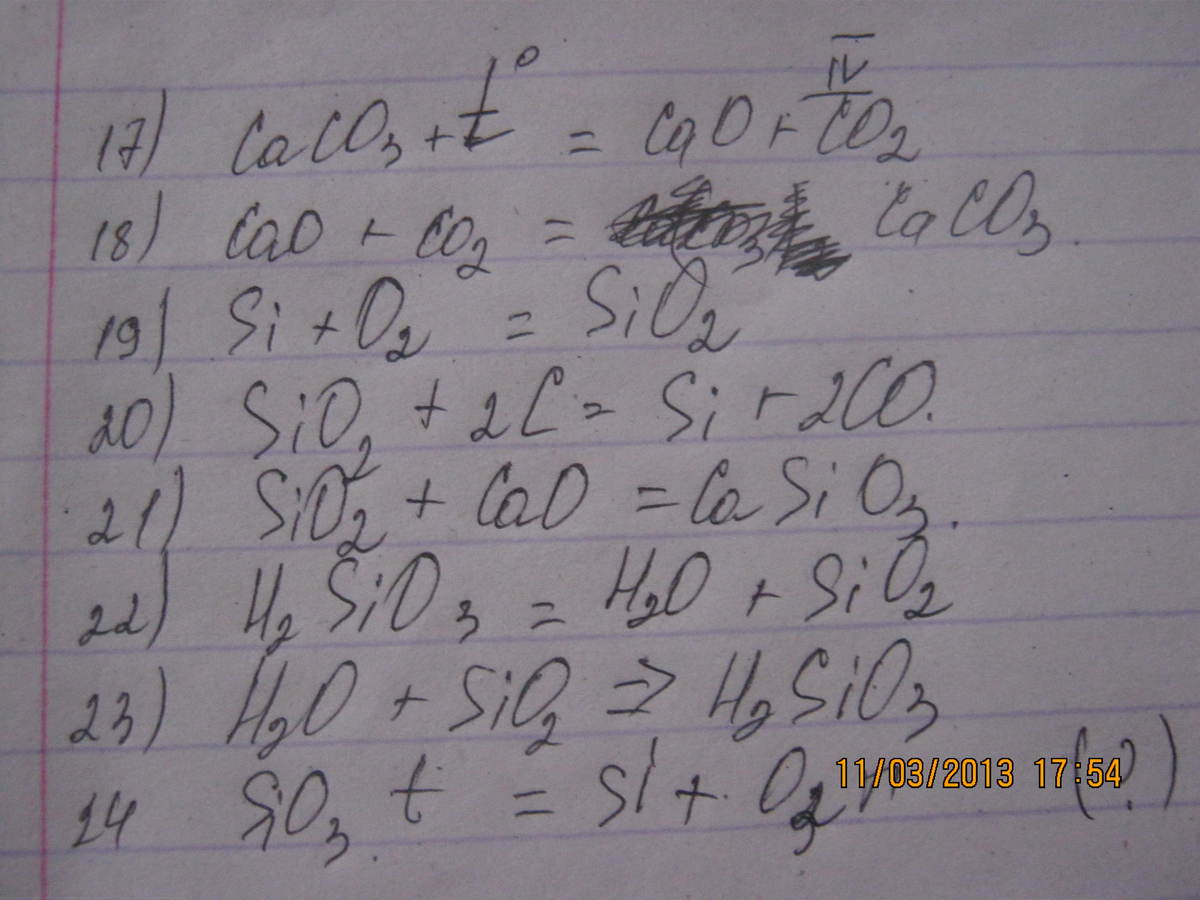 17) CaCO3 + t° = CaO + CO2
IV
18) CaO + CO2 = CaCO3.
19) Si + O2 = SiO2
20) SiO2 + 2C = Si + 2CO.
21) SiO2 + CaO = CaSiO3.
22) H2SiO3 = H2O + SiO2
23) H2O + SiO2 => H2SiO3
24 SiO3. t = Si + O2 (?)
11/03/2013 17:54